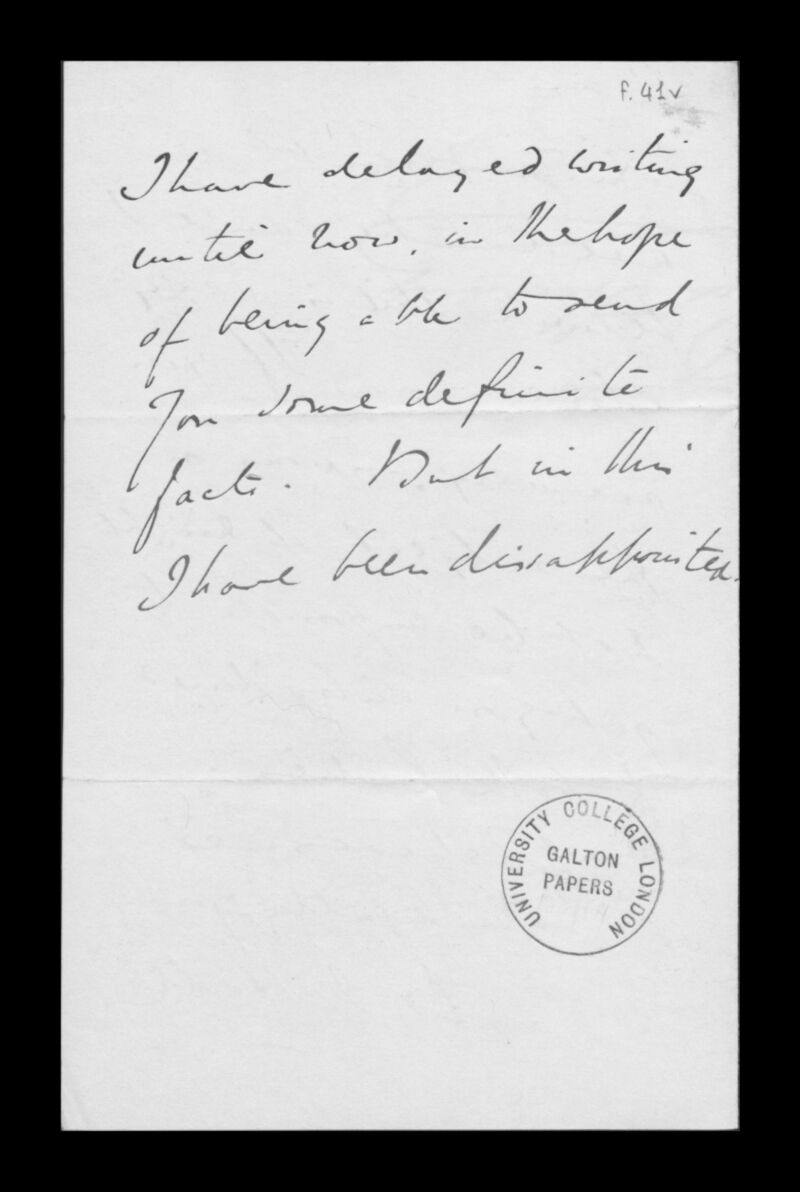 f. 41v
I have delayed writing
until now, in the hope
of being able to send
you some definite
facts. But in this
I have been disappointed.
UNIVERSITY COLLEGE LONDON
GALTON
PAPERS